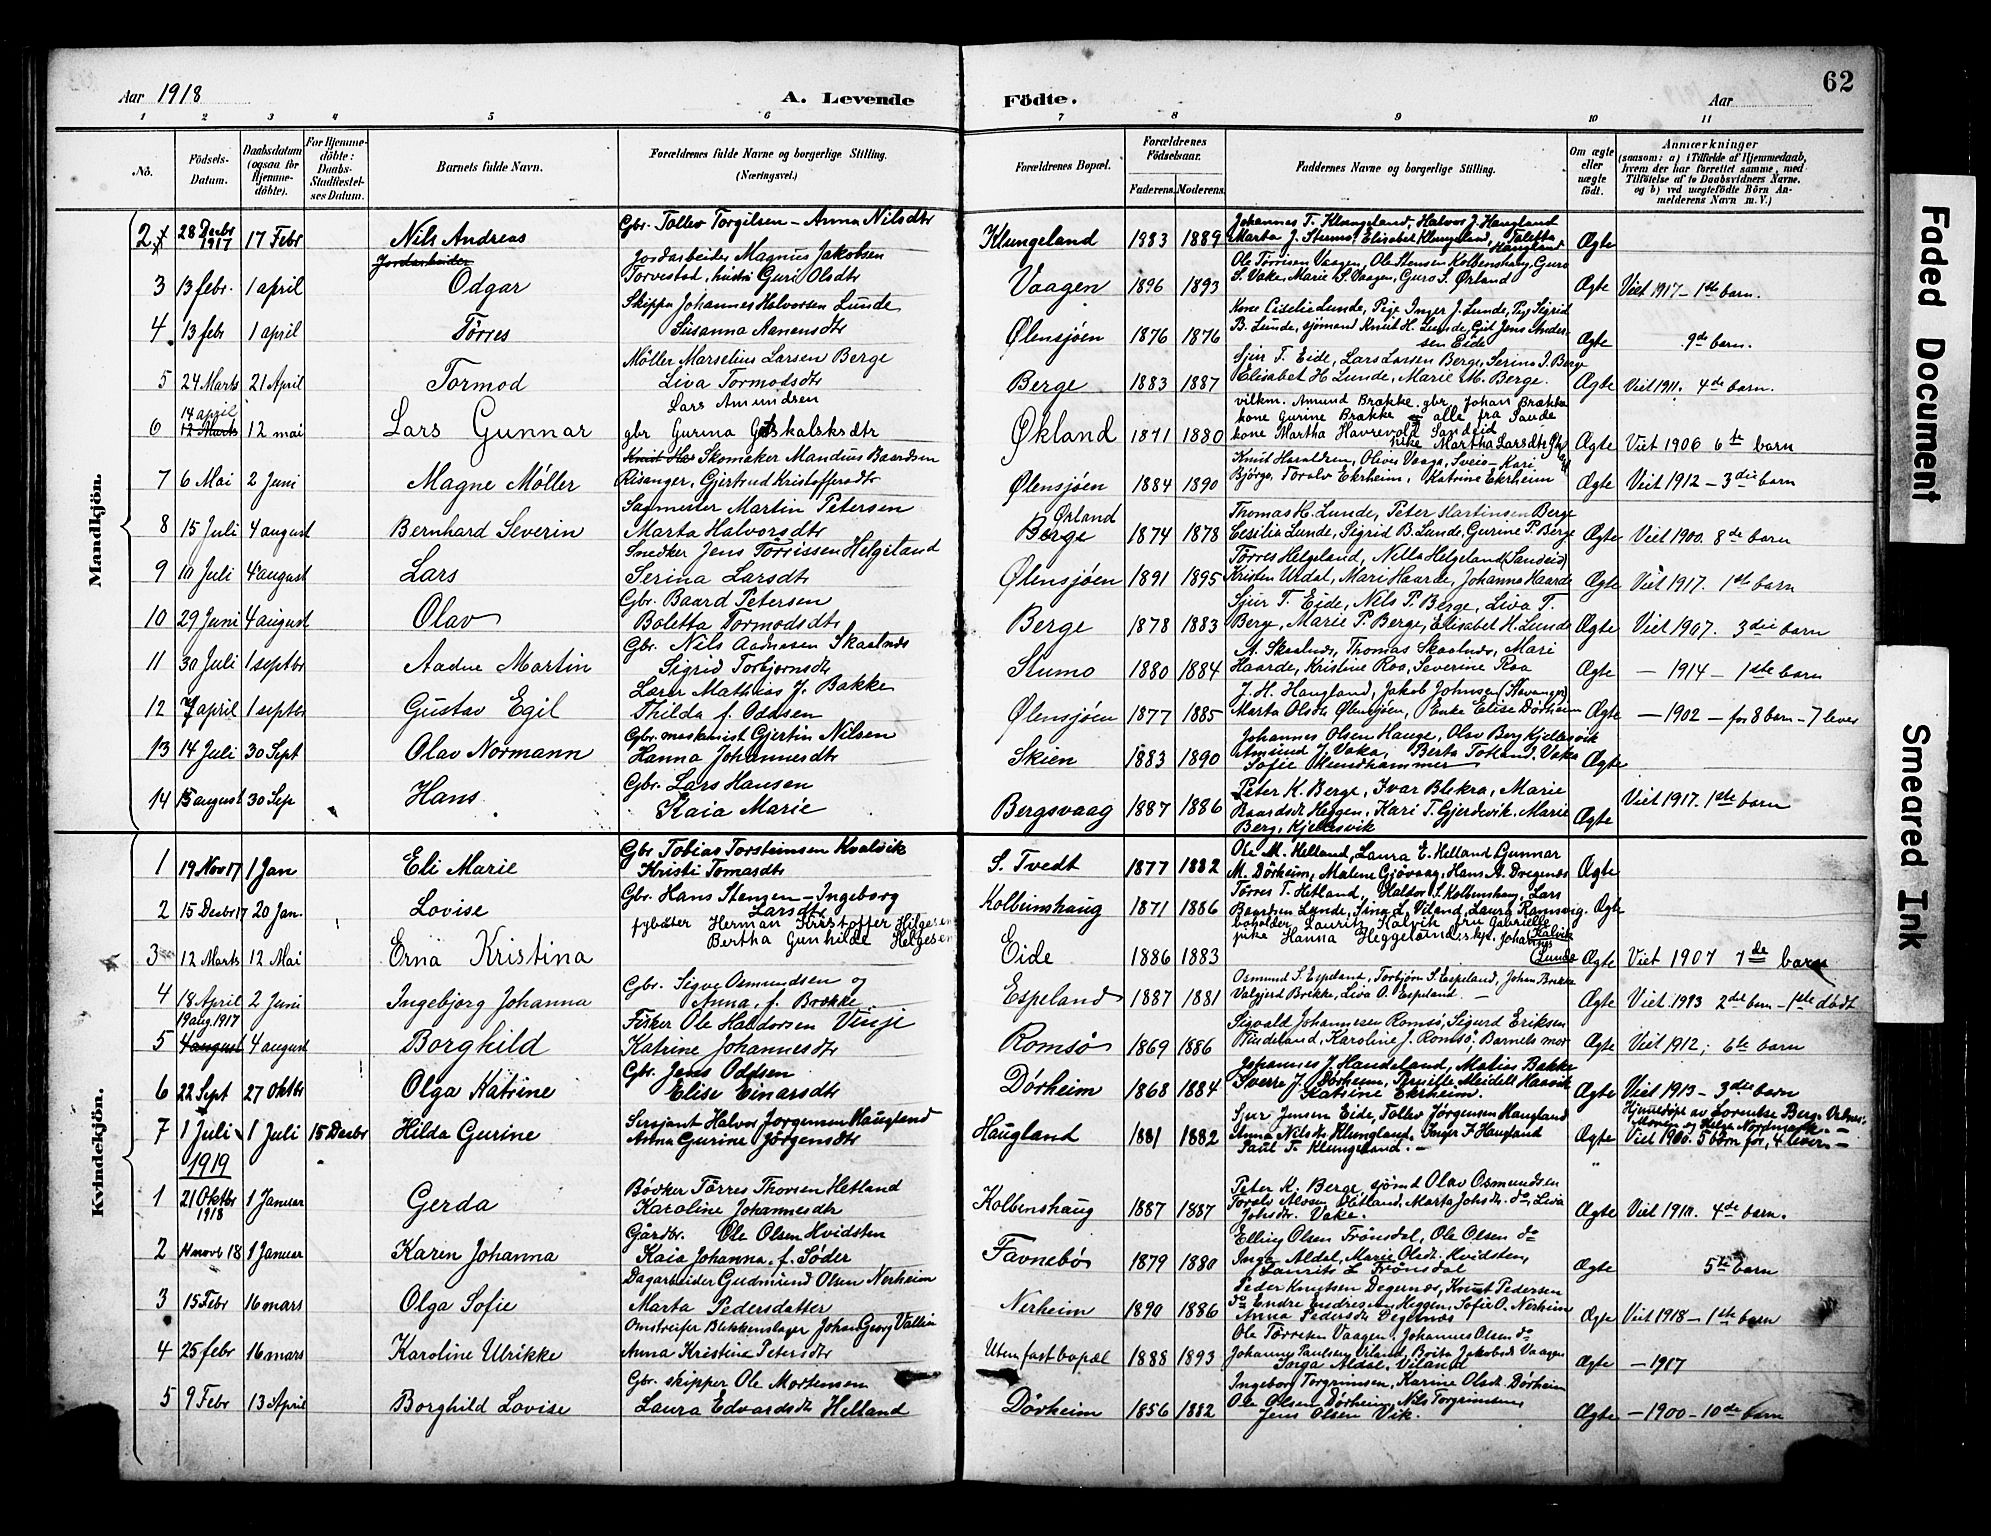 62
Aar 1918
A. Levende Födte.
Aar
1 2 3 4 5 6 7 8 9 10 11
No.
Födsels-Datum.
Daabsdatum (ogsaa for Hjemme-döbte).
For Hjemme-döbte: Daabs-Stadfæstel-ses Datum.
Barnets fulde Navn.
Forældrenes fulde Navne og borgerlige Stilling. (Næringsvei.)
Forældrenes Bopæl.
Forældrenes Födselsaar.
Faderens. Moderens.
Faddernes Navne og borgerlige Stilling.
Om ægte eller uægte födt.
Anmærkninger
(saasom: a) i Tilfælde af Hjemmedaab, hvem der har forrettet samme, med Tilföielse af to Daabsvidners Navne, og b) ved uægtefödte Börn Anmelderens Navn m. V.)
Mandkjön.
2 28 Decbr 1917 17 Febr Nils Andreas Gbr. Tollev Torgilsen - Anna Nilsdtr Klungeland 1883 1889 Johannes T. Klungeland, Halvor J. Haugland Marta J. Stumo, Elisabet Klungeland, Taletta Haugland Ægte
Jordarbeider
3 13 febr. 1 april Odgar Jordarbeider Magnus Jakobsen Torvestad, hustr Guri Olsdtr Vaagen 1896 1893 Ole Torrisen Vaagen, Ole Stensen Kolbenshaug, Guro S. Vake, Marie S. Vaagen, Guro S. Ørland Ægte Viet 1917 - 1ste barn.
4 13 febr 1 april Tørres Skippr Johannes Halvorsen Lunde Susanna Aanensdtr Ølensjøen 1876 1876 Kone Ciselie Lunde, Pige Inger J. Lunde, Pig Sigrid B. Lunde, sjømand Knut H. Lunde, Gut Jens Andersen Eide Ægte 9de barn.
5 24 Marts 21 April Tormod Møller Marselius Larsen Berge Liva Tormodsdtr Berge 1883 1887 Sjur T. Eide, Lars Larsen Berge, Serina J. Berge Elisabet H. Lunde, Marie M. Berge. Ægte Viet 1911. 4de barn.
6 14 april 12 Marts 12 mai Lars Gunnar Lars Amundsen gbr Gurina Gotskalksdtr Økland 1871 1880 vilkm. Amund Brække. gbr Johan Brække kone Gurine Brække - alle fra Sande kone Martha Havrevold Sandeid pike Martha Larsdtr Ægte Viet 1906 6te barn
7 6 Mai 2 Juni Magne Møller Skomaker Mandius Baardsen Risanger, Gjertrud Kristoffersdtr Ølensjøen 1884 1890 Knut Haraldsen, Olive Vaaga, Sveio - Kari Bjørge, Torolv Ekrheim, Katrine Ekrheim Ægte Viet 1912 - 3die barn
8 15 Juli 4 august Bernhard Severin Sagmester Martin Petersen Marta Halvorsdtr Ørland Berge 1874 1878 Thomas H. Lunde, Peter Martinsen Berge Cesilia Lunde, Sigrid B. Lunde, Gurine P. Berge Ægte Viet 1900. 8de barn
9 10 Juli 4 august Lars Snedker Jens Tørrissen Helgeland Serina Larsdtr Ølensjøen 1891 1895 Tørres Helgeland, Nella Helgeland (Sandeid) Kristen Urdal, Mari Haarde, Johanna Haarde Ægte Viet 1917. 1ste barn
10 29 Juni 4 august Olav Gbr. Baard Petersen Boletta Tormodsdtr Berge 1878 1883 Sjur T. Eide, Nils P. Berge, Liva T. Berge, Marie P. Berge, Elisabet H. Lunde Ægte Viet 1907. 3die barn
11 30 Juli 1 septbr Aadne Martin Gbr. Nils Aadnesen Skaalnes Sigrid Torbjørnsdtr Stumo 1880 1884 A. Skaalnes, Thomas Skaalnes, Mari Haarde, Kristine Roa, Severine Roa Ægte - 1914 - 1ste barn
12 7 april 1 septbr Gustav Egil Lærer Mathias J. Bakke Thilda f. Oddsen Ølensjøen 1877 1885 J. H. Haugland, Jakob Johnsen (Stavanger) Marta Olsdtr Ølensjøen, Enke Elise Dørheim Ægte - 1902 - før 8 barn - 7 lever
13 14 Juli 30 Sept Olav Normann Gbr. maskinist Gjertin Nilsen Hanna Johannesdtr Skien 1883 1890 Johannes Olsen Hauge, Olav Berg Kjelersvik Amund J. Vaka, Berta Totland, Vaka Sofie Mundhammer Ægte
14 15 august 30 Sep Hans Gbr. Lars Hansen Kaia Marie Bergsvaag 1887 1886 Peter K. Berge, Ivar Blekra, Marie Baardsdtr Heggen, Kari T. Gjerdevik, Marie Berg, Kjelersvik Ægte Viet 1917. 1ste barn
Kvindekjön.
1 19 Nov 17 1 Jan Eli Marie Gbr Tobias Torsteinsen Kvalvik Kristi Tomasdtr S. Tvedt 1877 1882 Ole M. Helland, Laura E. Helland Gunnar M. Dørheim, Malene Gjøvaag, Hans A. Dregenes Ægte
2 15 Decbr 17 20 Jan. Lovise Gbr. Hans Stensen - Ingeborg Larsdtr Kolbeinshaug 1871 1886 Tørres T. Hetland, Haldor S. Kolbenshaug, Lars Baardsen Lunde, Sina L. Viland, Laura Ramsvig Ægte
3 12 Marts 12 Mai Erna Kristina fyrbøter Herman Kristoffer Helgesen Bertha Gunhilde Helgesen Eide 1886 1883 beholder Laurits Kalvik fru Gabrielle Kalvik pike Hanna Heggeland, skp. Johannes Lunde Ægte Viet 1907 7de barn
4 18 April 2 Juni Ingebjørg Johanna Gbr. Sigve Osmundsen og Anna, f. Brække. Espeland 1887 1881 Osmund S. Espeland, Torbjørn S. Espeland, Johan Brekke Valgjerd Brekke, Liva O. Espeland. - Ægte Viet 1913 2det barn - 1ste dødt
5 19 aug. 1917 4 august 4 august Borghild Fisker Ole Haldorsen Vinje Katrine Johannesdtr Romsø 1869 1886 Sigvald Johannesen Romsø, Sigurd Eriksen Tindeland, Karoline J. Romsø, Barnets mor Ægte Viet 1912; 6te barn
6 22 Sept 27 Oktbr Olga Katrine Gbr. Jens Oddsen Elise Einarsdtr Dørheim 1868 1884 Johannes J. Handeland, Matias Bakke Sverre J. Dørheim, Pernille Meidell Haavik Katrine Ekrheim. Ægte Viet 1913 - 3die barn
7 1 Juli 1 Juli 15 Decbr Hilda Gurine Sersjant Halvor Jørgensen Haugland Anna Gurine Jørgensdtr Haugland 1881 1882 Sjur Jensen Eide, Tollev Jørgensen Haugland Anna Nilsdtr Klungland, Inger J. Haugland Paul T. Klungeland. - Ægte Hjemmedøpt av Lorentse Berg. Vidner: Moren og Helga Nordmark. - Viet 1900. 5 barn før, 4 lever -
1919
1 21 Oktbr 1918 1 Januar Gerda Bødker Tørres Thorsen Hetland Karoline Johannesdtr Kolbenshaug 1887 1887 Peter K. Berge, sjømd Olav Osmundsen Torolv Alvsen Hetland, Marta Johsdtr do, Liva Johsdtr. Vake. Ægte Viet 1910. 4de barn.
2 14 novb 18 1 Januar Karen Johanna Gårdbr. Ole Olsen Kvidsten Kaia Johanna, f. Søder Favnebø 1879 1880 Elling Olsen Frönsdal, Ole Olsen do Inga Aldal, Marie Olsdtr. Kvidsten, Laurits L Frønsdal Ægte 5te barn
3 15 Febr 16 mars Olga Sofie Dagarbeider Gudmund Olsen Nerheim Marta Pedersdatter Nerheim 1890 1886 Peder Knutsen Degernæs, Knut Pedersen do Endre Endresen Heggen, Sofie O. Nerheim Anna Pedersdtr Degernæs Ægte Viet 1918 - 1ste barn
4 25 febr 16 mars Karoline Ulrikke Omstreifer Blekkenslager Johan Georg Vallin Anna Kristine Petersdtr Uten fast bopæl 1888 1893 Ole Tørresen Vaagen, Johannes Olsen do Johannes Paulsen Viland, Brita Jakobsdtr Vaagen Inga Aldal, Viland Ægte - 1917
5 9 Febr 13 April Borghild Lovise Gbr. skipper Ole Mortensen Laura Edvardsdtr Helland Dørheim 1856 1882 Ingeborg Torgrimsen, Karine Olsdtr. Dørheim Ole Olsen Dørheim, Nils Torgrimsen, Jens Olsen Vik. Ægte - 1900 - 10de barn
Faded Document
Smeared Ink